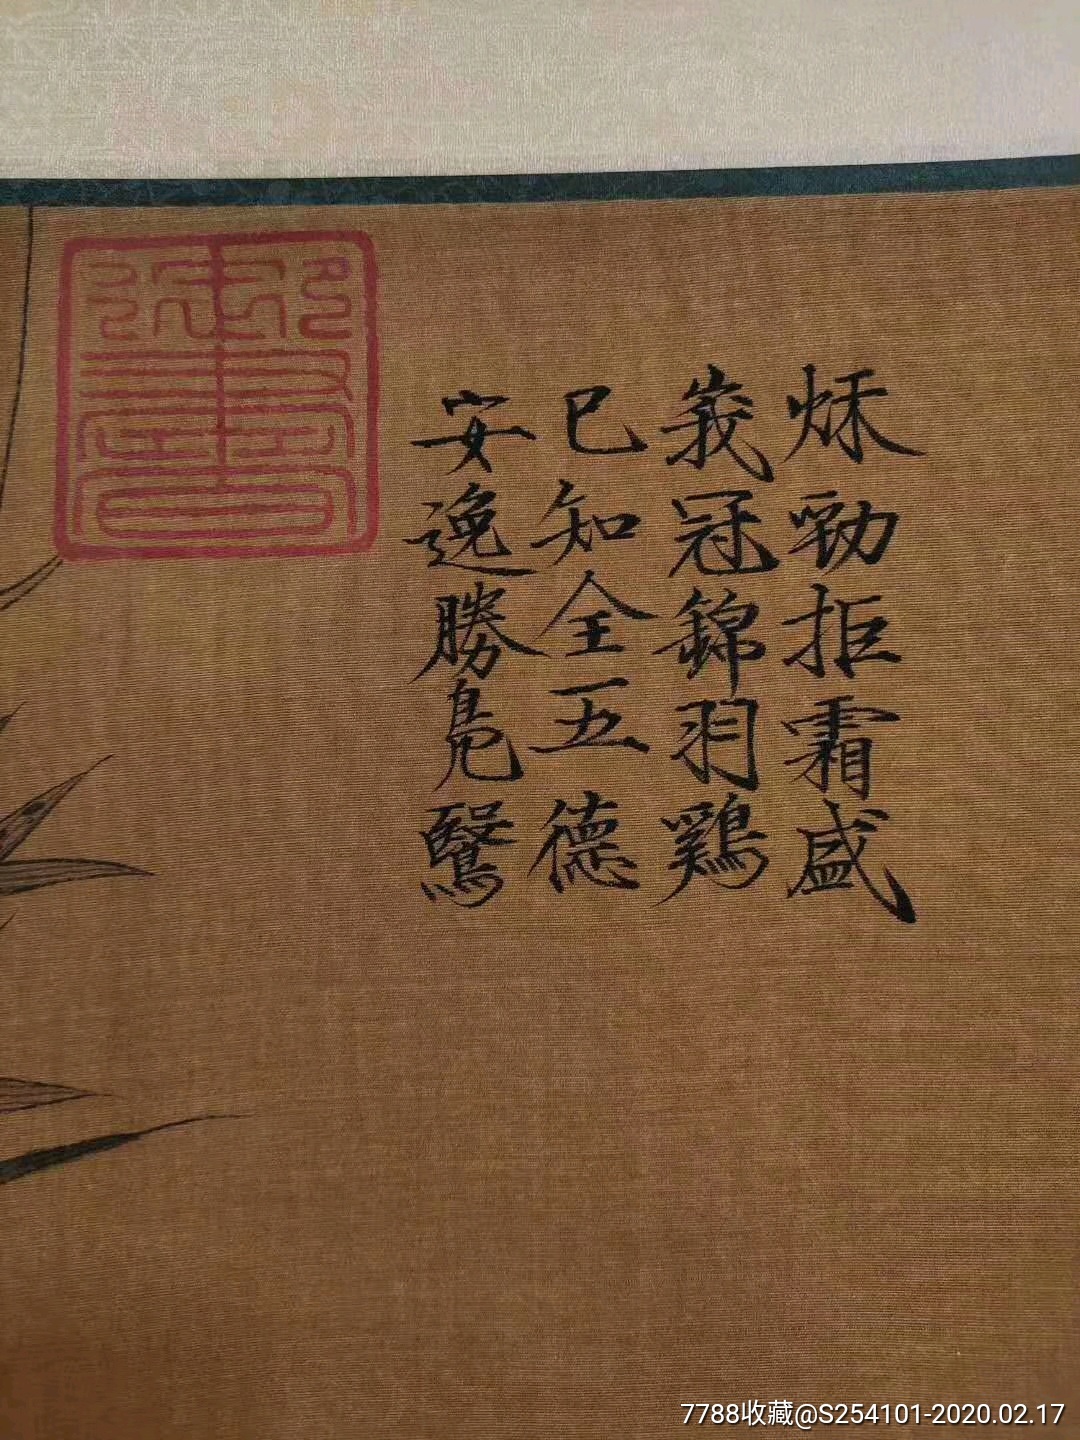 秌勁拒霜盛
峩冠錦羽鷄
已知全五德
安逸勝鳧鷖
7788收藏@S254101-2020.02.17